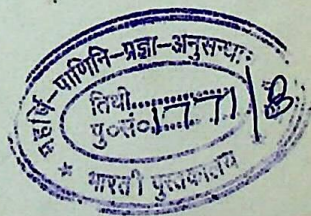 महर्षि-पाणिनि-प्रज्ञा-अनुसन्धा
तिथी..............
पु०सं० 1771/B
* भारती पुस्तकालय